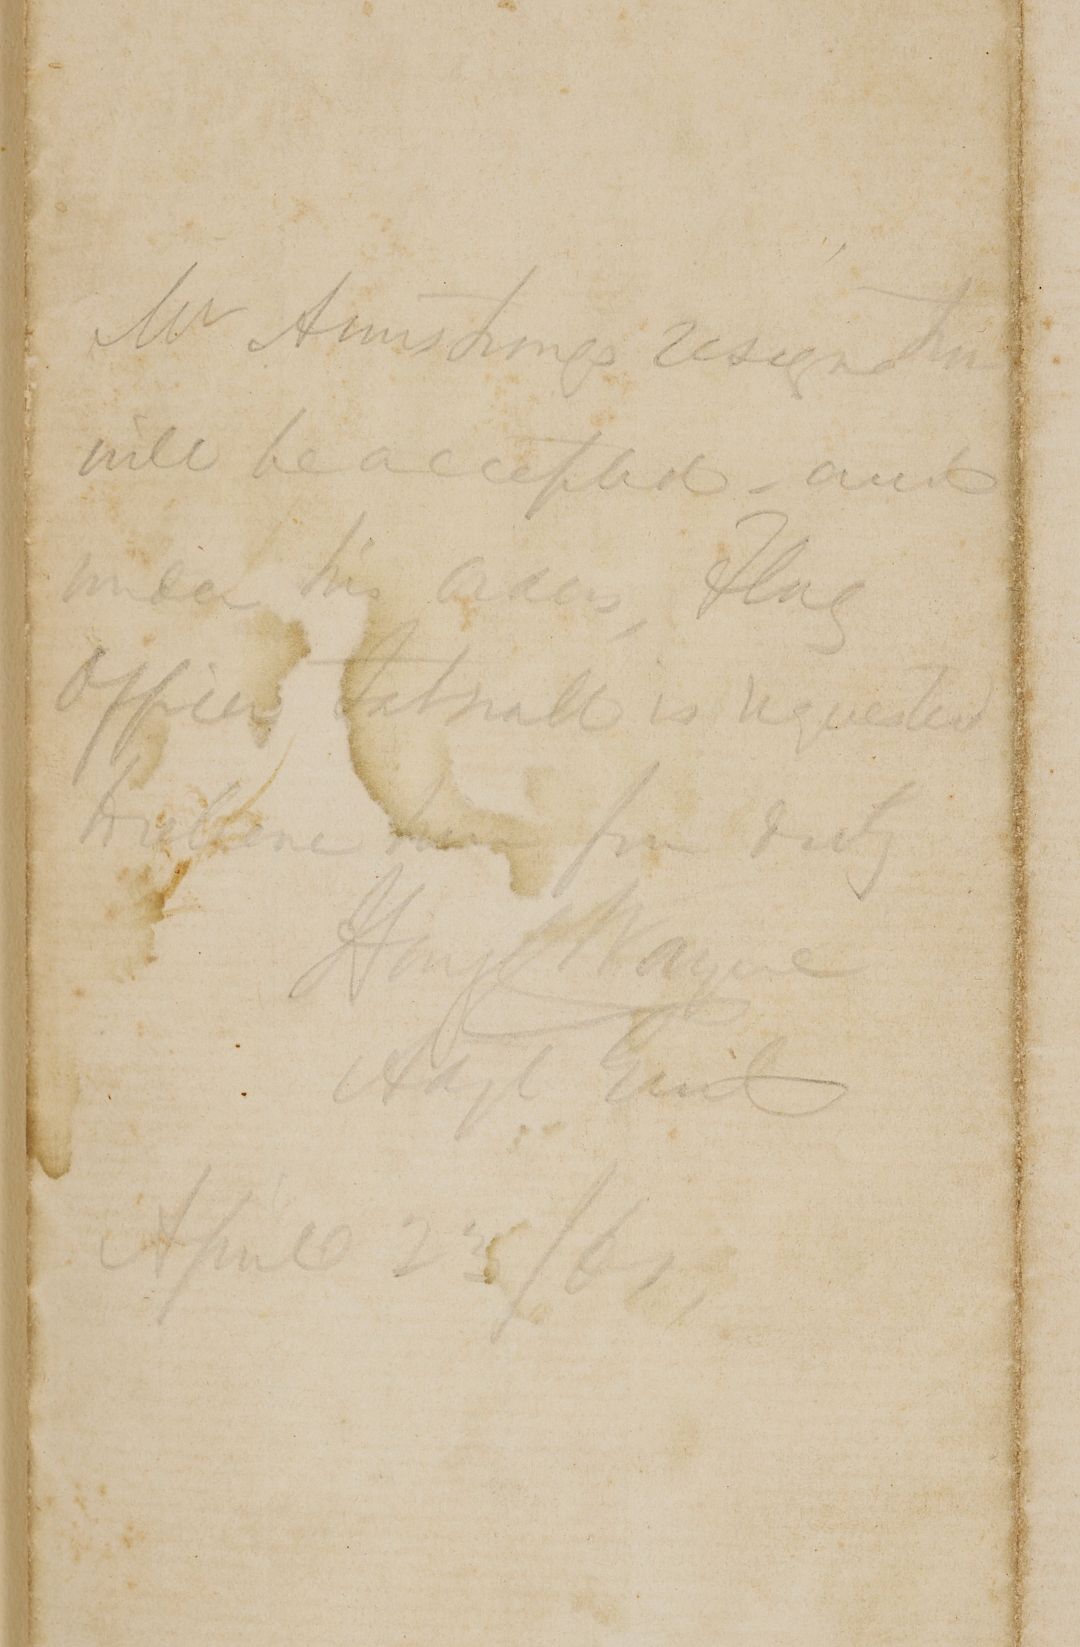 Mr Armstrongs resignation
will be accepted, and
under his orders, Flag
Officer Tatnall is requested
to relieve him from duty
Henry C Wayne
Adjt Genl
April 23/61,